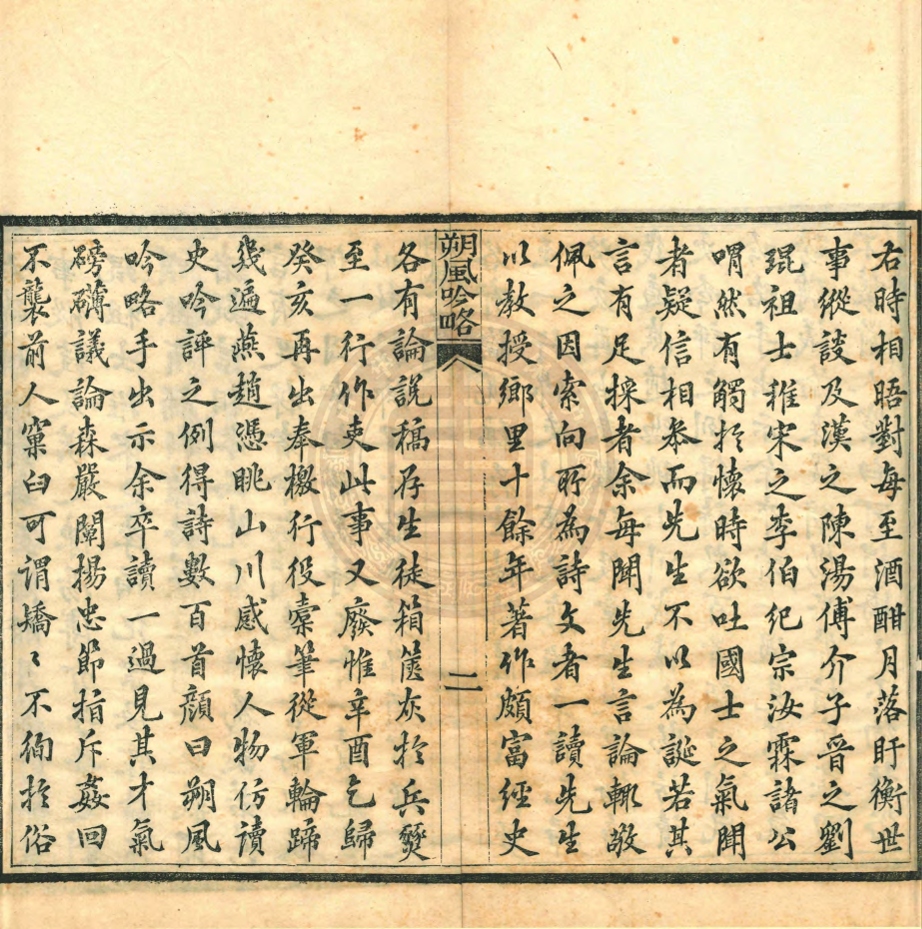 右時相晤對每至酒酣月落盱衡世
事縱談及漢之陳湯傅介子晉之劉
琨祖士稚宋之李伯紀宗汝霖諸公
喟然有觸扵懷時欲吐國士之氣聞
者疑信相叅而先生不以為誕若其
言有足採者余每聞先生言論輙敬
佩之因索向所為詩文者一讀先生
以教授鄉里十餘年著作頗富經史
朔風吟略
二
各有論說稿存生徒箱篋灰扵兵燹
至一行作吏此事又廢惟辛酉乞歸
癸亥再出奉檄行役橐筆從軍輪蹄
幾遍燕趙憑眺山川感懷人物仿讀
史吟評之例得詩數百首顏曰朔風
吟略手出示余卒讀一過見其才氣
磅礴議論森嚴闡揚忠節指斥姦回
不襲前人窠臼可謂矯〻不徇扵俗